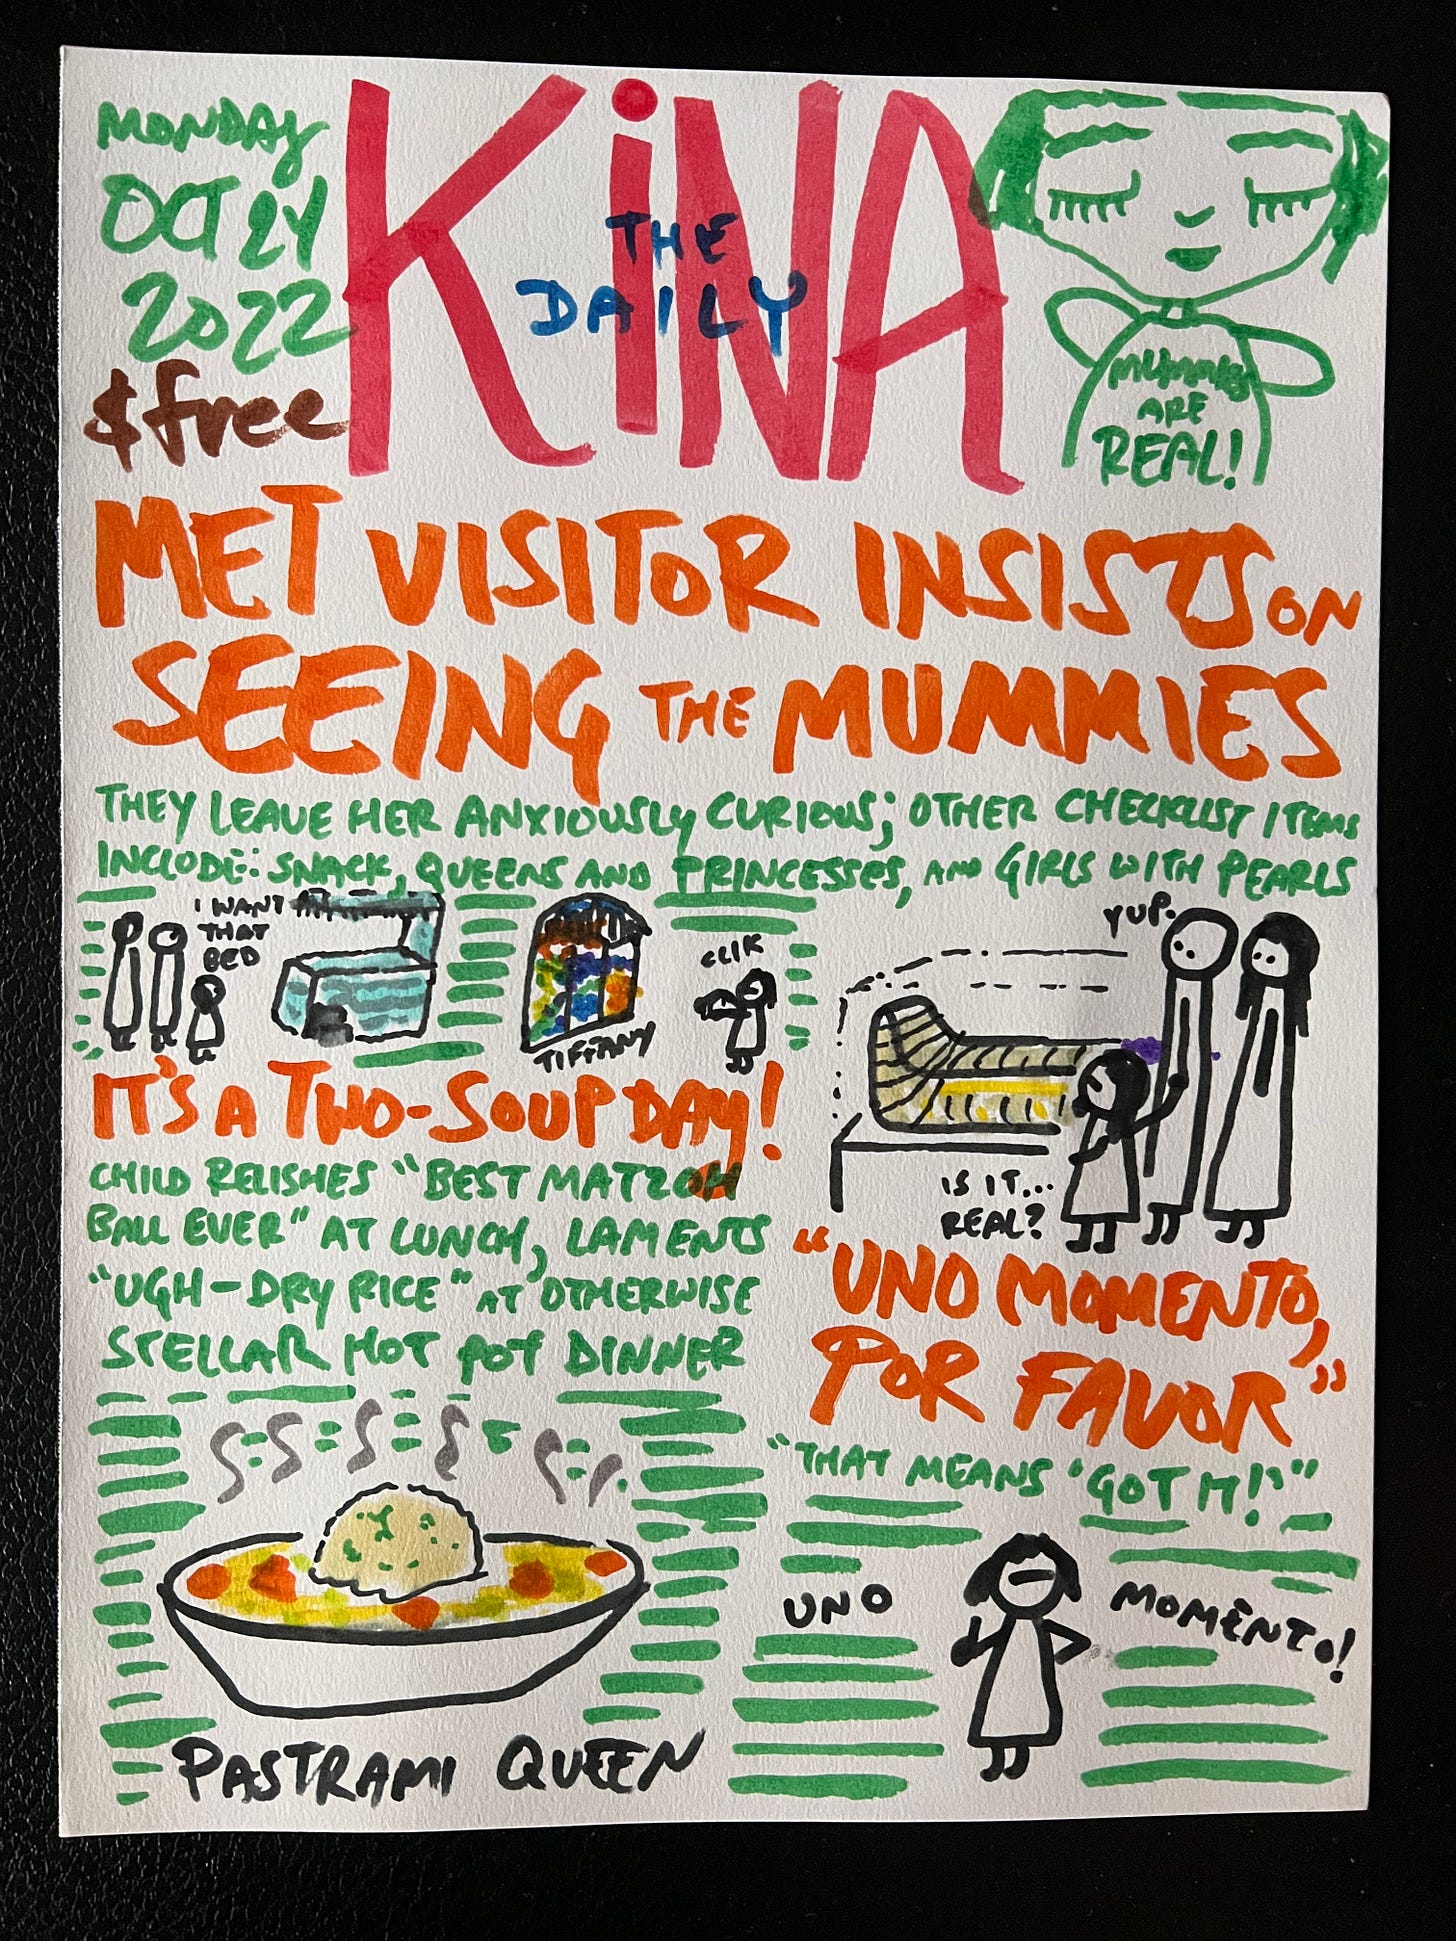 MONDAY
OCT 24
2022
$free
KiNA
THE
DAILY
MUMMIES
ARE
REAL!
MET VISITOR INSISTS ON
SEEING THE MUMMIES
THEY LEAVE HER ANXIOUSLY CURIOUS; OTHER CHECKLIST ITEMS
INCLUDE: SNACK, QUEENS AND PRINCESSES, AND GIRLS WITH PEARLS
I WANT
THAT
BED
TIFFANY
CLIK
YUP.
IS IT...
REAL?
IT'S A TWO-SOUP DAY!
CHILD RELISHES "BEST MATZOH
BALL EVER" AT LUNCH, LAMENTS
"UGH-DRY RICE" AT OTHERWISE
STELLAR HOT POT DINNER
PASTRAMI QUEEN
"UNO MOMENTO,
POR FAVOR"
"THAT MEANS 'GOT IT!'"
UNO
MOMENTO!